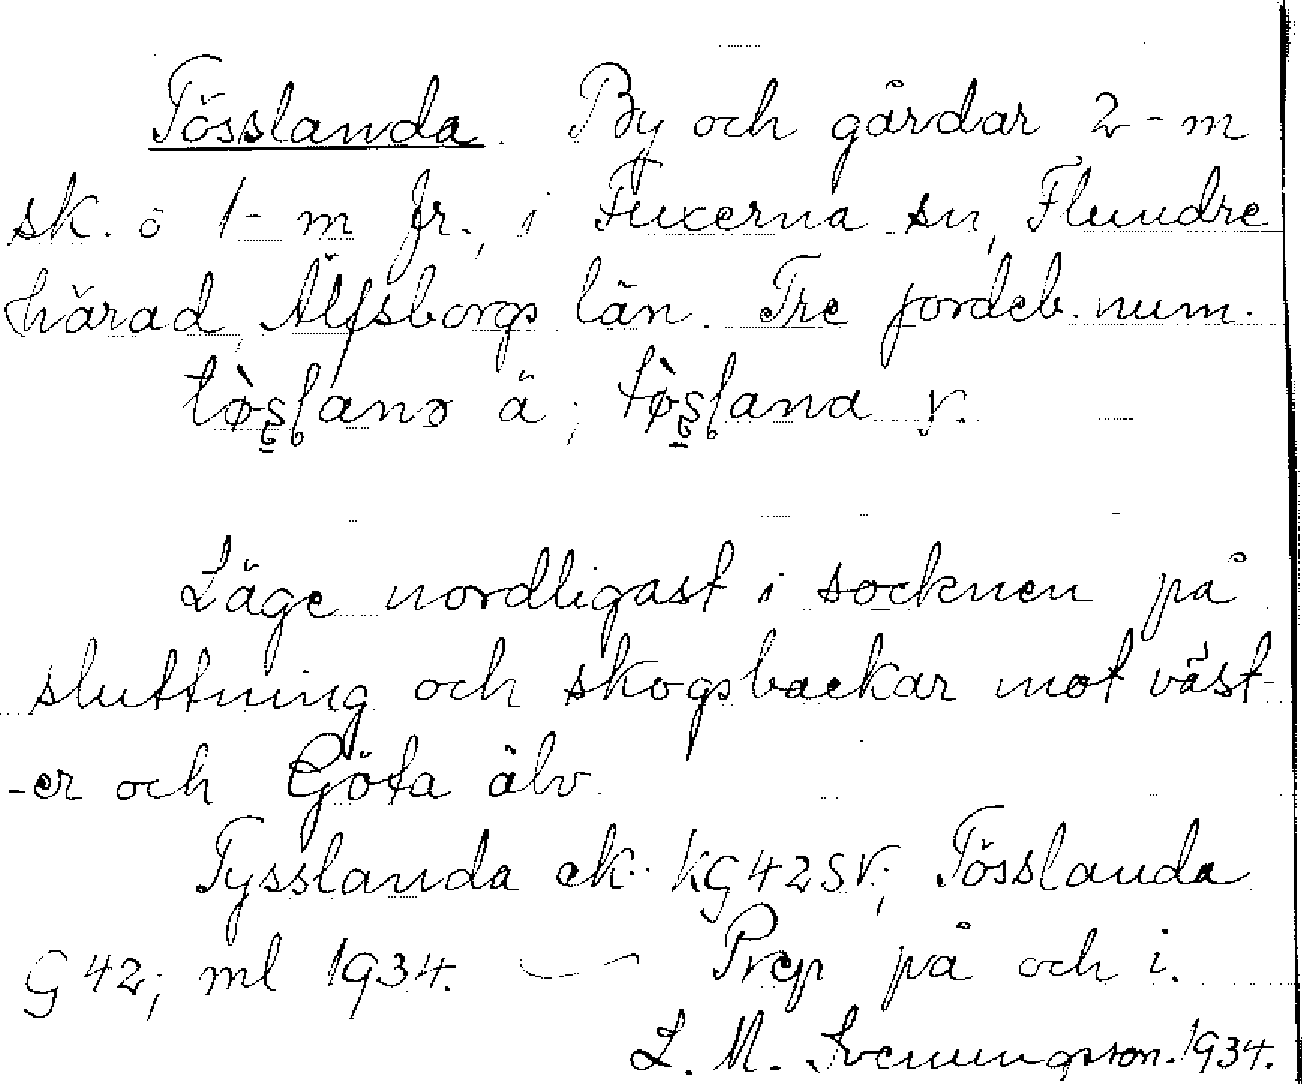 Tösslanda. By och gårdar 2-m
sk. o 1-m fr., i Fuxerna sn, Flundre
härad, Älfsborgs län. Tre jordeb. num.
ä; v.
Läge nordligast i socknen på
sluttning och skogsbackar mot väst-
-er och Göta älv.
Tysslanda ek. KG42SV; Tösslanda
G42; ml 1934. — Prep på och i.
L. M. Svenungsson. 1934.